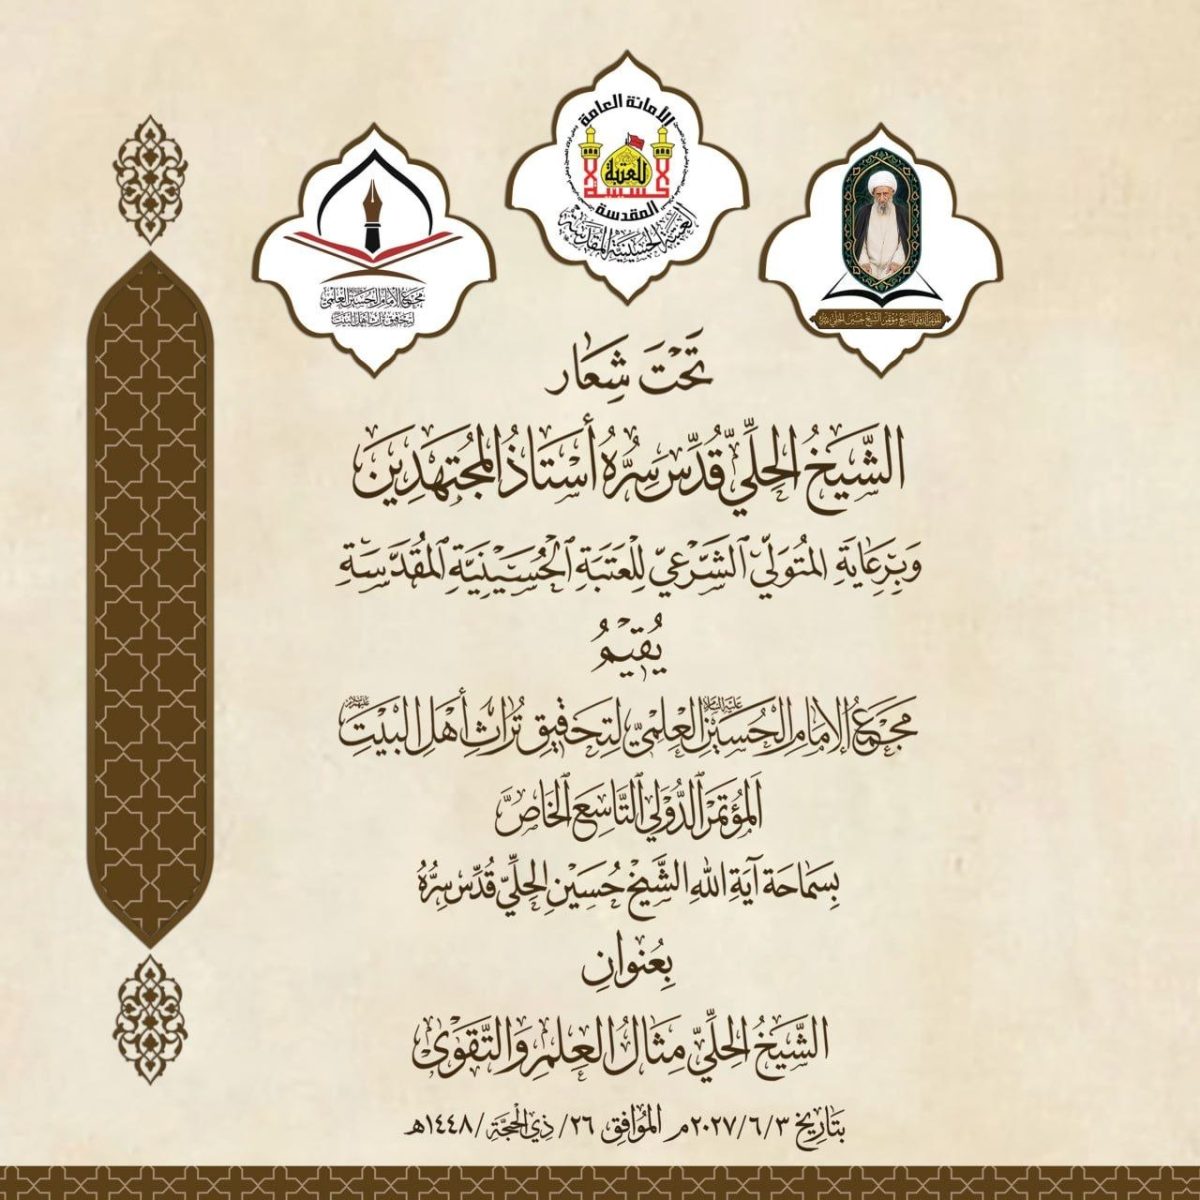 الأمانة العامة
للعتبة
الحسينية
المقدسة
العتبة الحسينية المقدسة
مجمع الإمام الحسين العلمي
لتحقيق تراث أهل البيت
المؤتمر الدولي التاسع مؤتمر الشيخ حسين الحلي
تَحْتَ شِعَار
الشَّيْخُ الحِلِّيّ قُدِّسَ سِرُّهُ أُسْتَاذُ المُجْتَهِدِينَ
وَبِرِعَايَةِ المُتَوَلِّيّ الشَّرْعِيّ لِلْعَتَبَةِ الْحُسَيْنِيَّةِ الْمُقَدَّسَةِ
يُقِيْمُ
مَجْمَعُ الإِمَامِ الْحُسَيْنِ عليه السلام الْعِلْمِيّ لِتَحْقِيقِ تُرَاثِ أَهْلِ الْبَيْتِ
الْمُؤْتَمَرَ الدُّوَلِيَّ التَّاسِعَ الْخَاصَّ
بِسَمَاحَةِ آيَةِ اللهِ الشَّيْخِ حُسَيْنِ الحِلِّيّ قُدِّسَ سِرُّهُ
بِعُنْوَانِ
الشَّيْخُ الحِلِّيّ مِثَالُ الْعِلْمِ وَالتَّقْوَى
بتاريخ ٢٠٢٧/٦/٣م الموافق ٢٦/ ذي الحجة /١٤٤٨هـ